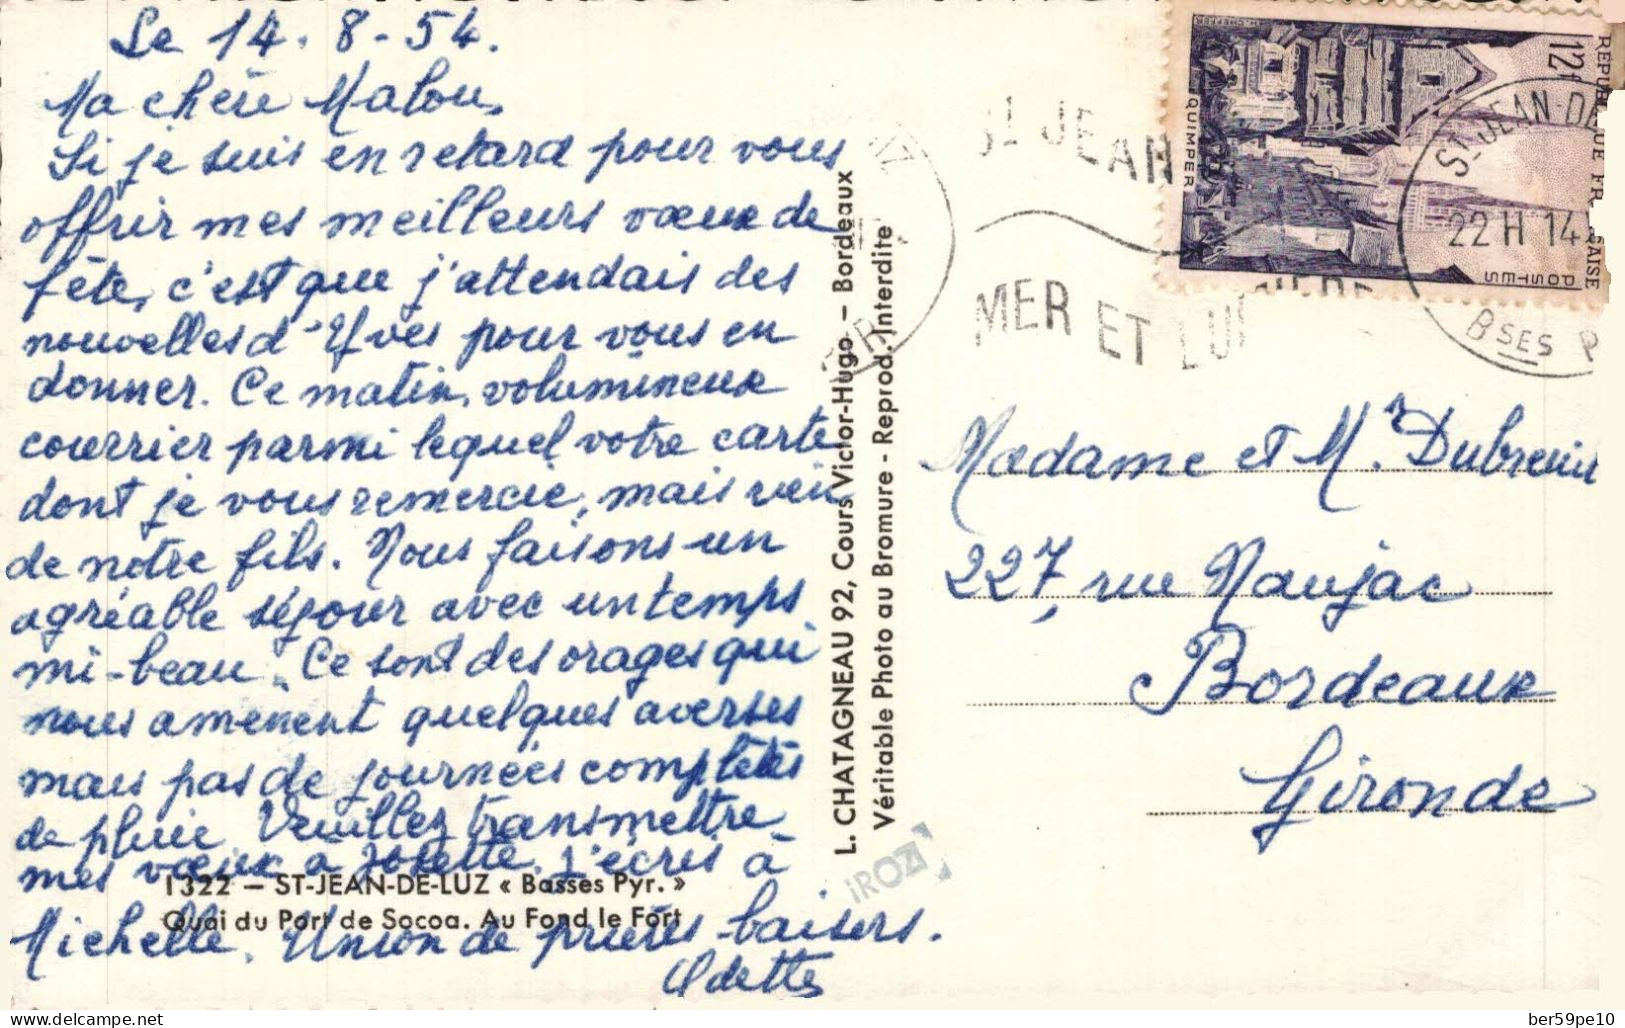 Le 14.8-54.
Ma chère Malou,
Si je suis en retard pour vous
offrir mes meilleurs vœux de
fête, c'est que j'attendais des
nouvelles d'Yves pour vous en
donner. Ce matin, volumineux
courrier parmi lequel votre carte
dont je vous remercie, mais rien
de notre fils. Nous faisons un
agréable séjour avec un temps
mi-beau. Ce sont des orages qui
nous amènent quelques averses
mais pas de journées complètes
de pluie. Veuillez transmettre
mes vœux à Josette. J'écris à
Michelle. Union de prières baisers.
Odette
1322 — ST-JEAN-DE-LUZ « Basses Pyr. »
Quai du Port de Socoa. Au Fond le Fort
L. CHATAGNEAU 92, Cours Victor-Hugo — Bordeaux
Véritable Photo au Bromure - Reprod. Interdite
IROZ
ST JEAN
MER ET LUM
12f
POSTES
QUIMPER
ST JEAN-DE
22H 14
BSES P
Madame et Mr. Dubreuil
227, rue Naujac
Bordeaux
Gironde
delcampe.net
ber59pe10